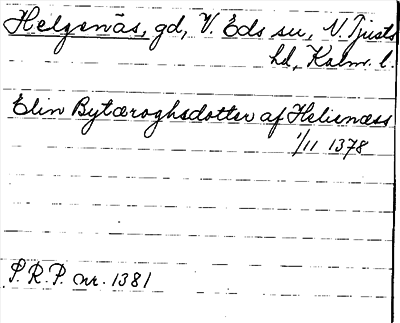 Helgenäs, gd, V. Eds sn, N. Tjusts
hd, Kalm. l.
Elin Bytæroghsdotter af Helienæss
1/11 1378
S.R.P. nr. 1381